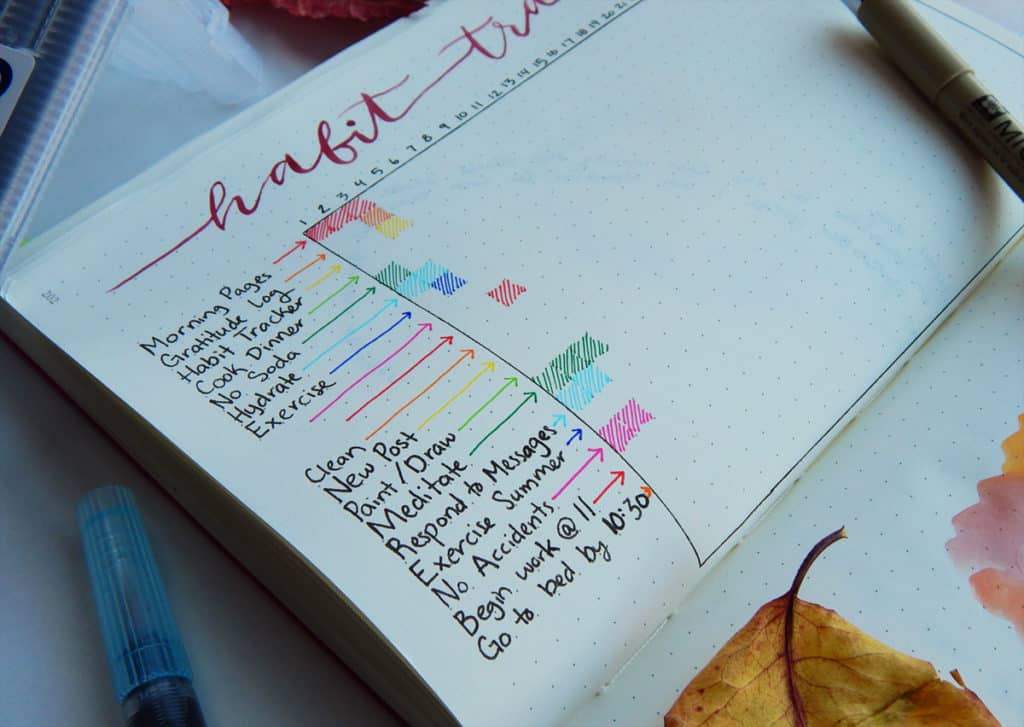 habit tra
1 2 3 4 5 6 7 8 9 10 11 12 13 14 15 16 17 18 19 20 21
202
Morning Pages
Gratitude Log
Habit Tracker
Cook Dinner
No Soda
Hydrate
Exercise
Clean
New Post
Paint/Draw
Meditate
Respond to Messages
Exercise Summer
No Accidents
Begin work @ 11
Go to bed by 10:30